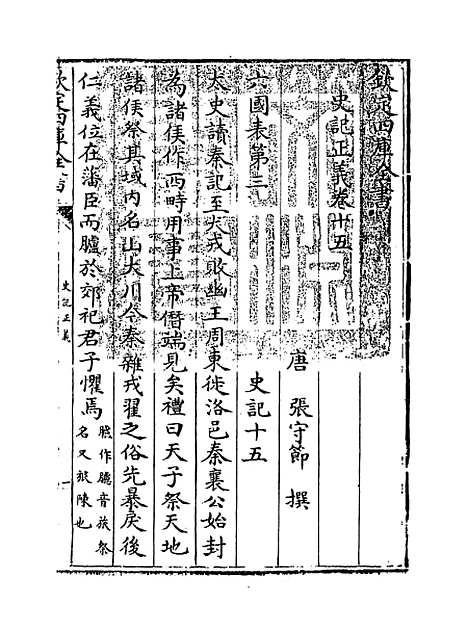 欽定四庫全書
史記正義卷十五
唐 張守節 撰
六國表第三 史記十五
太史讀秦記至犬戎敗幽王周東徙洛邑秦襄公始封
為諸侯作西畤用事上帝僭端見矣禮曰天子祭天地
諸侯祭其域內名山大川今秦雜戎翟之俗先暴戾後
仁義位在藩臣而臚於郊祀君子懼焉臚作臚音旅祭
名又旅陳也
欽定四庫全書
史記正義
一